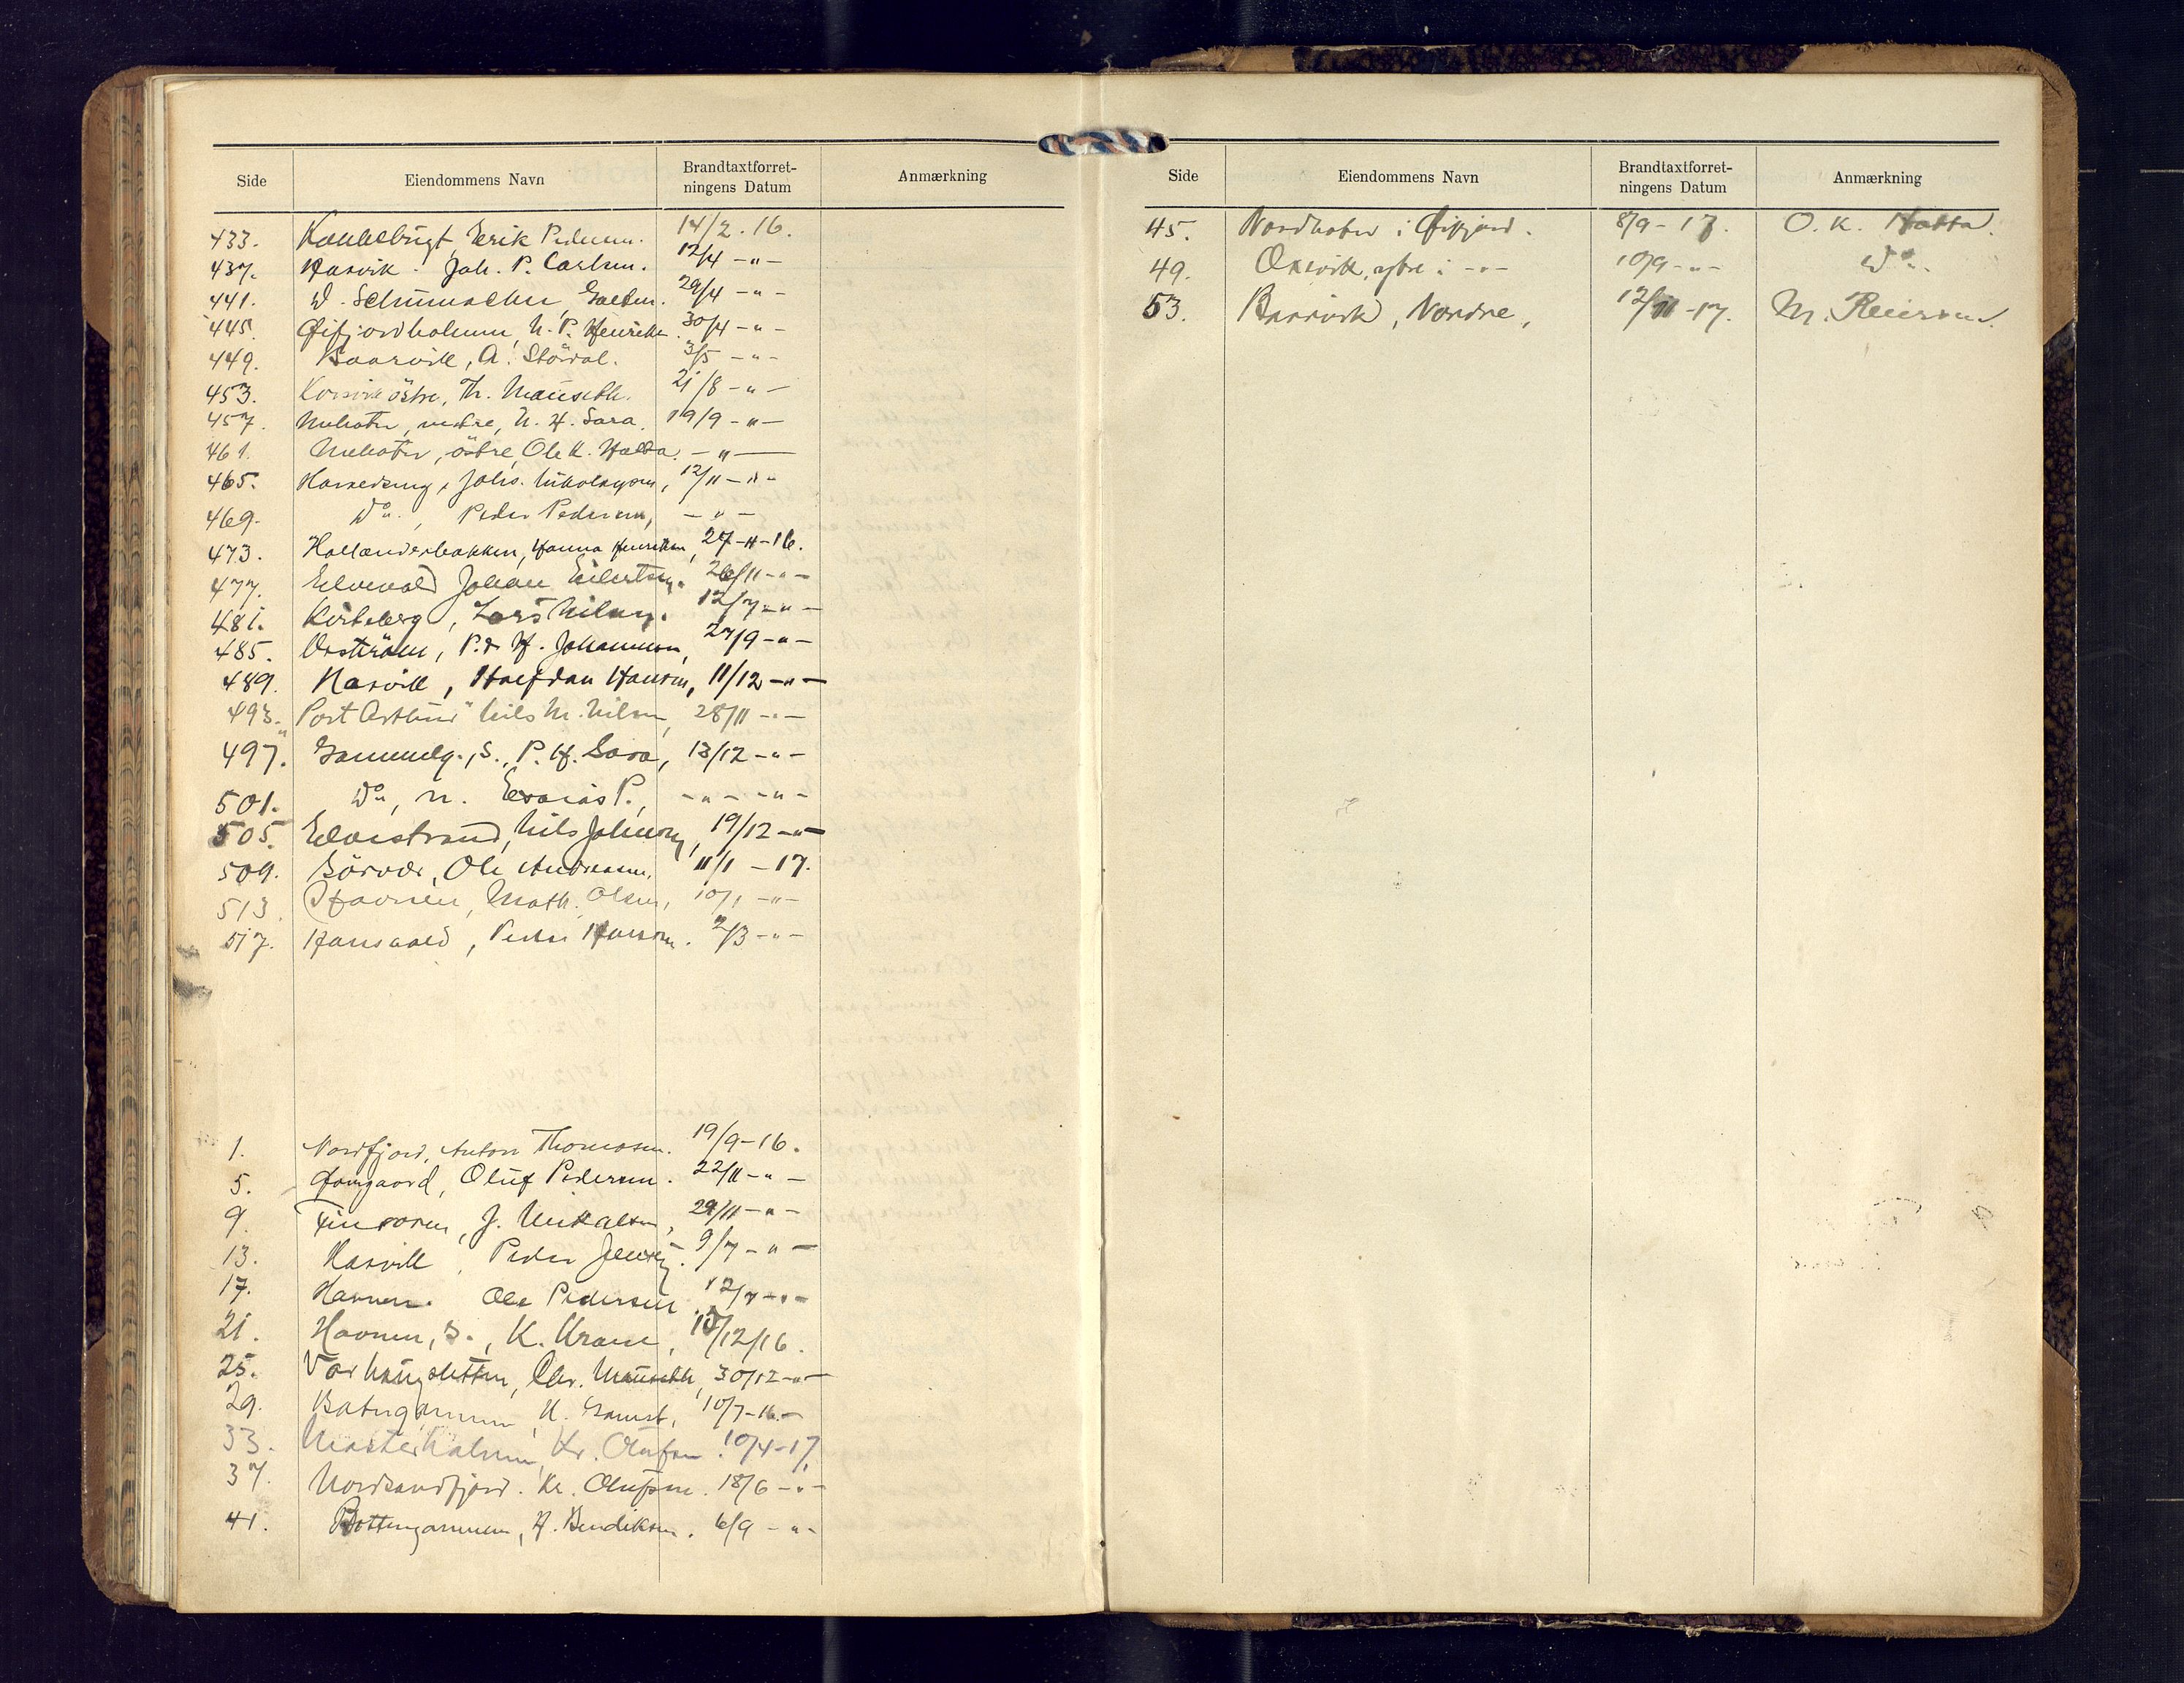 Side Eiendommens Navn Brandtaxtforret-ningens Datum Anmærkning
433. Erik Pedersen. 14/2. 16.
437. Hasvik. Joh. P. Carlsen. 12/4 -"-
441. D. Schumacher, 29/4 -"-
445. Øifjordholmen, N. P. Henriks. 30/4 -"-
449. Baarvik, A. 3/5 -"-
453. östre, Th. Mauseth. 21/8 -"-
457. vestre, N. H. Sara. 19/9 -"-
461. östre, Ole K. Hatta. -"-
465. Johs. Nikolaysen, 12/11 -"-
469. Do., Peder Pedersen, -"-
473. Hollænderbakken, Hanna Henriksen, 27-11-16.
477. Elvevold Johan Eilertsen. 26/11 -"-
481. Kirkeberg, Lars Nilsen. 12/7 -"-
485. P. & H. Johannesen, 27/9 -"-
489. Hasvik, Halfdan Hansen, 11/12 -"-
493. "Port Arthur" Nils M. Nilsen, 28/11 -"-
497. Gammelg., S., P. H. Sara, 13/12 -"-
501. Do, n. Esaias P., -"- -"-
505. Elvestrand, Nils Johnsen, 19/12 -"-
509. Sörvær, Ole Andreasen. 11/1 - 17.
513. Havnen, Math. Olsen, 10/1 -"-
517. Peder Hansen. 2/3 -"-
1. Nordfjord, Anton Thomasen. 19/9-16.
5. Oluf Pedersen. 22/11 -"-
9. J. Mikalsen, 29/11 -"-
13. Hasvik, Peder Jensen. 9/7 -"-
17. Havnen. Ole Pedersen. 12/7 -"-
21. Havnen, S., K. Krane, /12/16.
25. Chr. Mauseth, 30/12 -"-
29. K. 10/7-16.
33. Kr. Olufsen. 10/4-17.
37. Nordsandfjord. Kr. Olufsen. 18/6 -"-
41. Bottengammen, H. Bendiksen. 6/9 -"-
Side Eiendommens Navn Brandtaxtforret-ningens Datum Anmærkning
45. i Øifjord. 8/9 - 17. O. K. Hatta.
49. Oxevik, ytre i -"- 10/9 -"- Do.
53. Nordre, 12/11 -17. M. Reiersen.